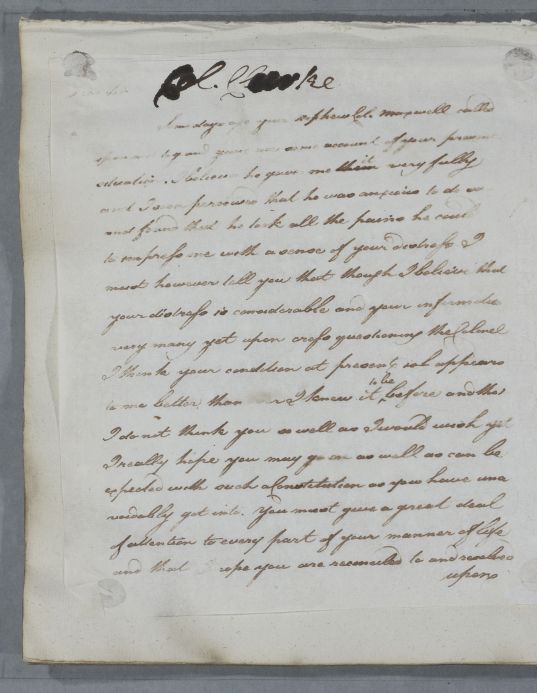 Col. Clerke
Some days ago your nephew Col. Maxwell called
upon me to and gave me some account of your present
situation. I believe he gave me it very fully
and I soon perceived that he was anxious to do so
and found that he took all the pains he could
to impress me with a sense of your distress I
must however tell you that though I believe that
your distress is considerable and your infirmities
very many yet upon cross questioning the Colonel
I think your condition at present appears
to me better than I knew it to be before and tho'
I do not think you as well as I would wish yet
I really hope you may go on as well as can be
expected with such a Constitution as you have una
voidably got into. You must give a great deal
of attention to every part of your manner of life
and that I hope you are reconciled to and resolved
upon